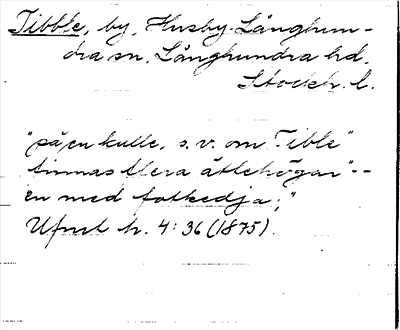 Tibble, by, Husby-Långhun-
dra sn, Långhundra hd.
Stockh. l.
"på en kulle, s.v. om Tible"
finnas flera ättehögar"--
en med fotkedja;"
Ufmt h. 4:36 (1875).